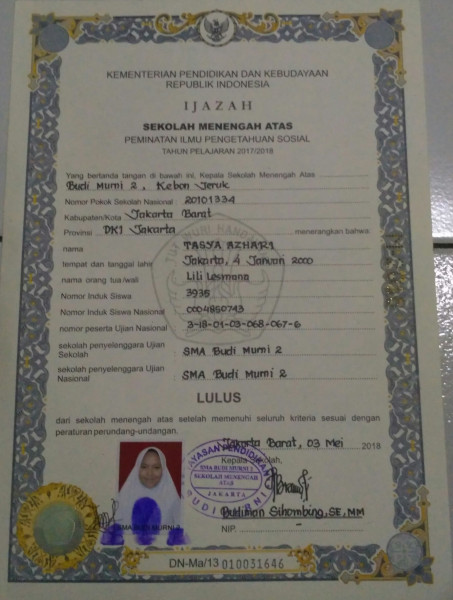 KEMENTERIAN PENDIDIKAN DAN KEBUDAYAAN
REPUBLIK INDONESIA
IJAZAH
SEKOLAH MENENGAH ATAS
PEMINATAN ILMU PENGETAHUAN SOSIAL
TAHUN PELAJARAN 2017/2018
Yang bertanda tangan di bawah ini, Kepala Sekolah Menengah Atas
Budi Murni 2, Kebon Jeruk
Nomor Pokok Sekolah Nasional 20101334
Kabupaten/Kota Jakarta Barat
Provinsi DKI Jakarta menerangkan bahwa:
nama TASYA AZHARI
tempat dan tanggal lahir Jakarta, 4 Januari 2000
nama orang tua/wali Lili Lesmana
Nomor Induk Siswa 3935
Nomor Induk Siswa Nasional 0004850743
nomor peserta Ujian Nasional 3-18-01-03-068-067-6
sekolah penyelenggara Ujian Sekolah : SMA Budi Murni 2
sekolah penyelenggara Ujian Nasional : SMA Budi Murni 2
LULUS
dari sekolah menengah atas setelah memenuhi seluruh kriteria sesuai dengan
peraturan perundang-undangan.
Jakarta Barat, 03 Mei 2018
Kepala Sekolah,
YAYASAN PENDIDIKAN
SMA BUDI MURNI 2
SEKOLAH MENENGAH
ATAS
JAKARTA
BUDI MURNI
Budiman Sihombing, SE, MM
NIP. -
DN-Ma/13 010031646
TUT WURI HANDAYANI